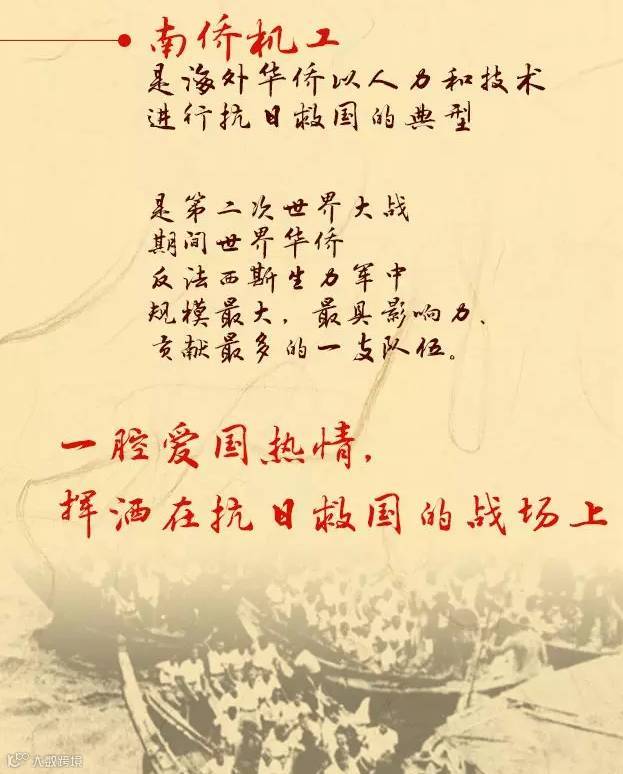 南侨机工
是海外华侨以人力和技术
进行抗日救国的典型
是第二次世界大战
期间世界华侨
反法西斯生力军中
规模最大，最具影响力、
贡献最多的一支队伍。
一腔爱国热情，
挥洒在抗日救国的战场上
大数跨境